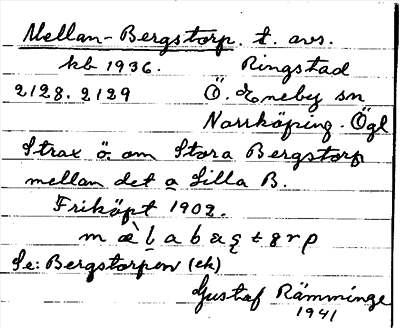 Mellan-Bergstorp. t. avs.
kb 1936. Ringstad
2128. 2129 Ö. Eneby sn
Norrköping. Ögl
Strax ö. om Stora Bergstorp
mellan det o Lilla B.
Friköpt 1902.
Se: Bergstorpen (ek)
Gustaf Rämminge
1941